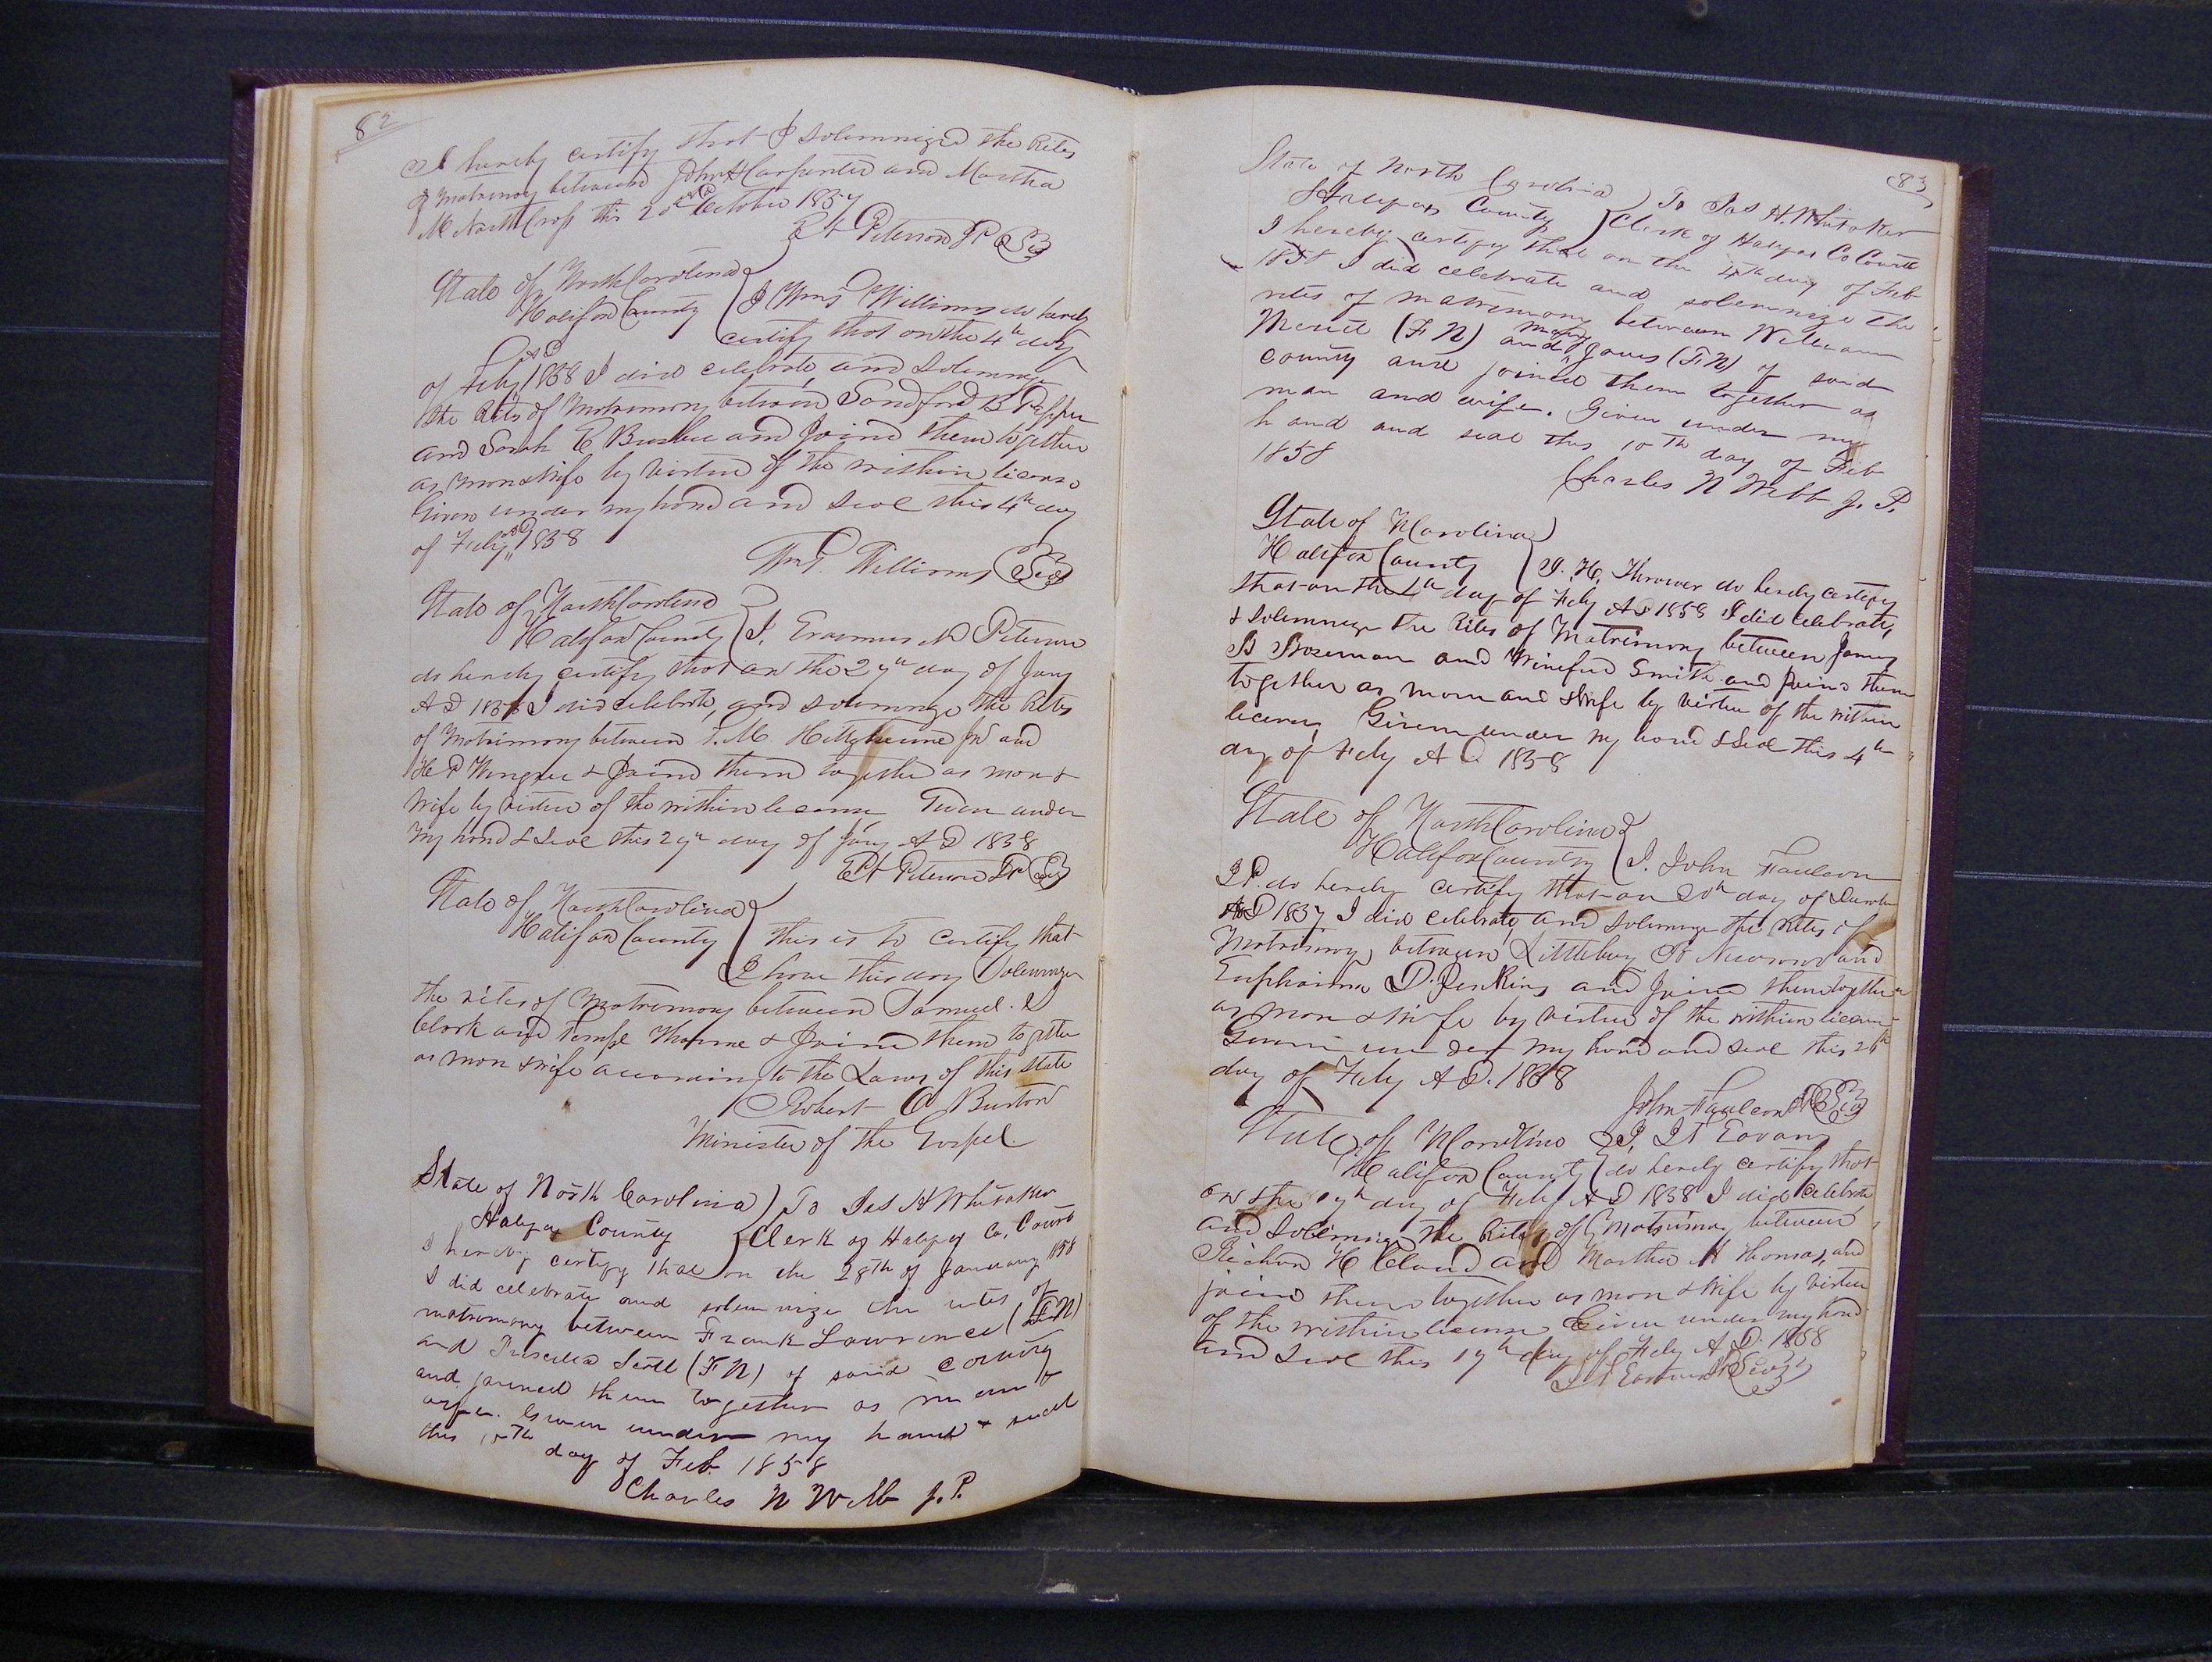 82
I hereby certify that I Solemnized the Rites
of Matrimony between John H Carpenter and Martha
M North Cross this 20th October 1857
Peterson JP Seal
State of North Carolina
Halifax County I Wm T Williams do hereby
certify that on the 4th day
of Feby AD 1858 I did celebrate, and Solemnize
the Rites of Matrimony between Sandford B Pepper
and Sarah E Busbee and Joind them together
as man & wife by virtue of the within license
Given under my hand and Seal this 4th day
of Feby AD 1858
Wm T. Williams Seal
State of North Carolina
Halifax County I, Erasmus A Peterson
do hereby certify that on the 27th day of Jany
AD 1858 I did celebrate, and solemnize the Rites
of Matrimony between and
& Joind them together as man &
wife by virtue of the within license Given under
my hand & Seal this 29th day of Jany AD 1858
Peterson JP Seal
State of North Carolina
Halifax County this is to certify that
I have this day Solemnize
the rites of Matrimony between Samuel. D
Clark and Temple Thorne & Joind them together
as man & wife according to the Laws of this State
Robert O Burton
Minister of the Gospel
State of North Carolina To Jas H Whitaker
Halifax County Clerk of Halifax Co, Court
I hereby certify that on the 28th of January 1858
I did celebrate and solemnize the rites of
matrimony between Frank Lawrence (F N)
and Priscilla Scott (F N) of said county
and joined them together as man &
wife. Given under my hand & seal
this 10th day of Feb. 1858
Charles N Webb J. P.
83
State of North Carolina To Jas H. Whitaker
Halifax County Clerk of Halifax Co Court
I hereby certify that on the 4th day of Feb
1858 I did celebrate and solemnize the
rites of matrimony between William
Merrit (F N) and Mary Jones (F N) of said
county and joined them together as
man and wife. Given under my
hand and seal this 10th day of Feb
1858
Charles N Webb J. P.
State of N Carolina
Halifax County I. H, Thrower do hereby certify
that on the 4th day of Feby AD 1858 I did celebrate,
& Solemnize the Rites of Matrimony between James
B Bozeman and Winefred Smith and Joind them
together as man and Wife by virtue of the within
license, Given under my hand & Seal this 4th
day of Feby A D 1858
State of North Carolina
Halifax County I. John Faulcon
J P. do hereby certify that on 20th day of December
AD 1857 I did celebrate, and solemnize the Rites of
Matrimony between Littlebury Newsom and
Euphaima D. Jenkins and Joind them together
as man & wife by virtue of the within license
Given under my hand and seal this
day of Feby A D. 1858
John Faulcon JP Seal
State of N Carolina I,
Halifax County do hereby certify that
on the 17th day of Feby A D 1858 I did celebrate
and Solemnize the Rites of Matrimony between
H Cloud and Martha H Thomas, and
joind them together as man & wife by virtue
of the within license Given under my hand
and Seal this 17th day of Feby A D. 1858
JP Seal